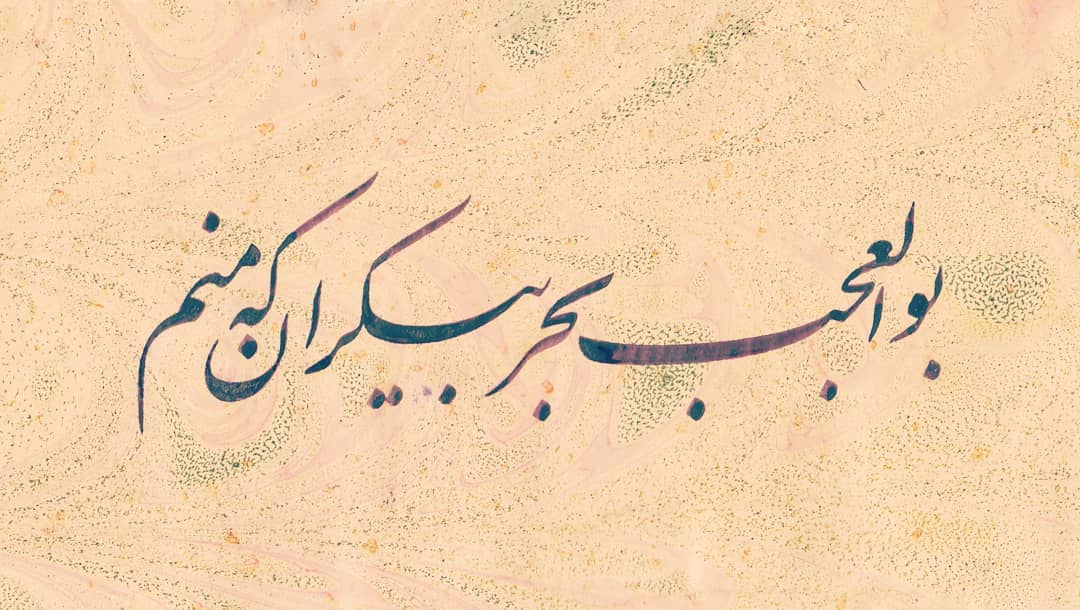 بوالعجب بحر بیکران که منم